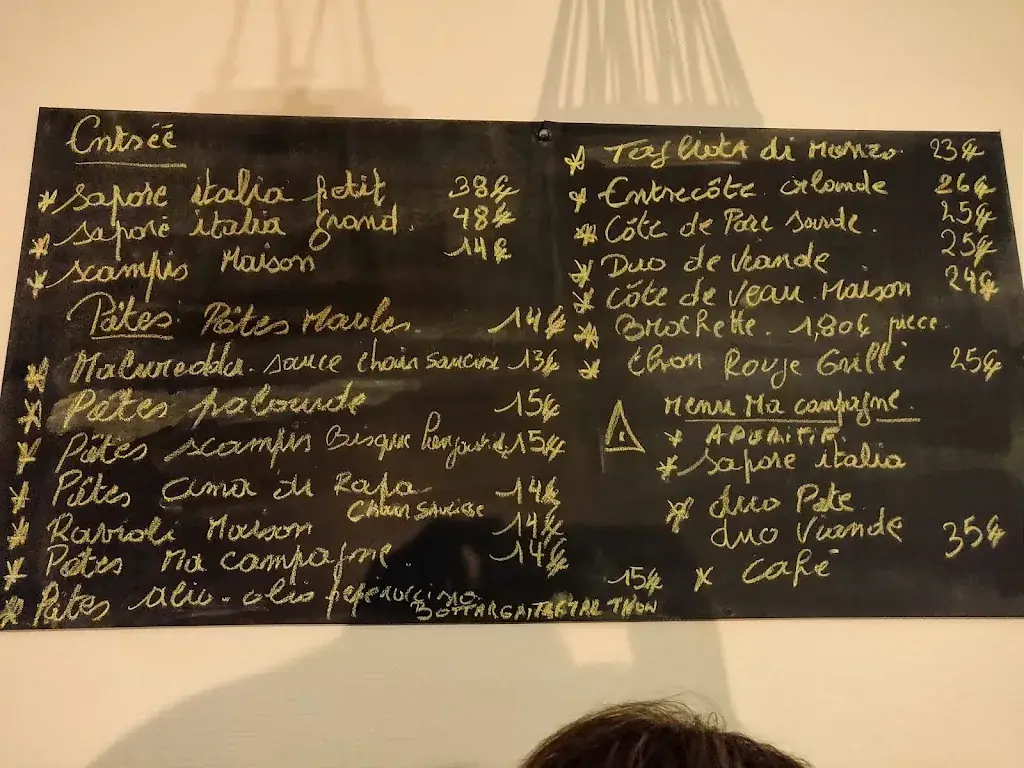 Entrée
* sapore italia petit 38€
* saporé italia grand. 48€
* scampis Maison 14€
Pâtes Pâtes Maules. 14€
* Malureddu. sauce chair saucisse 13€
* Pâtes palourde 15€
* Pâtes scampis Bisque 15€
* Pâtes cima di Rapa 14€
chair saucisse
* Ravioli Maison 14€
* Pâtes Ma campagne. 14€
* Pâtes alio-olio peperoccino 15€
BOTTARGA TARTAR THON
* Tagliata di Manzo 23€
* Entrecôte irlande 26€
* Côte de Porc 25€
* Duo de viande 25€
* Côte de veau Maison 24€
* Brochette. 1,80€ piece
* thon Rouge Grillé 25€
Menu Ma campagne.
* APERITIF.
* sapore italia
* duo Pate
duo viande 35€
* café